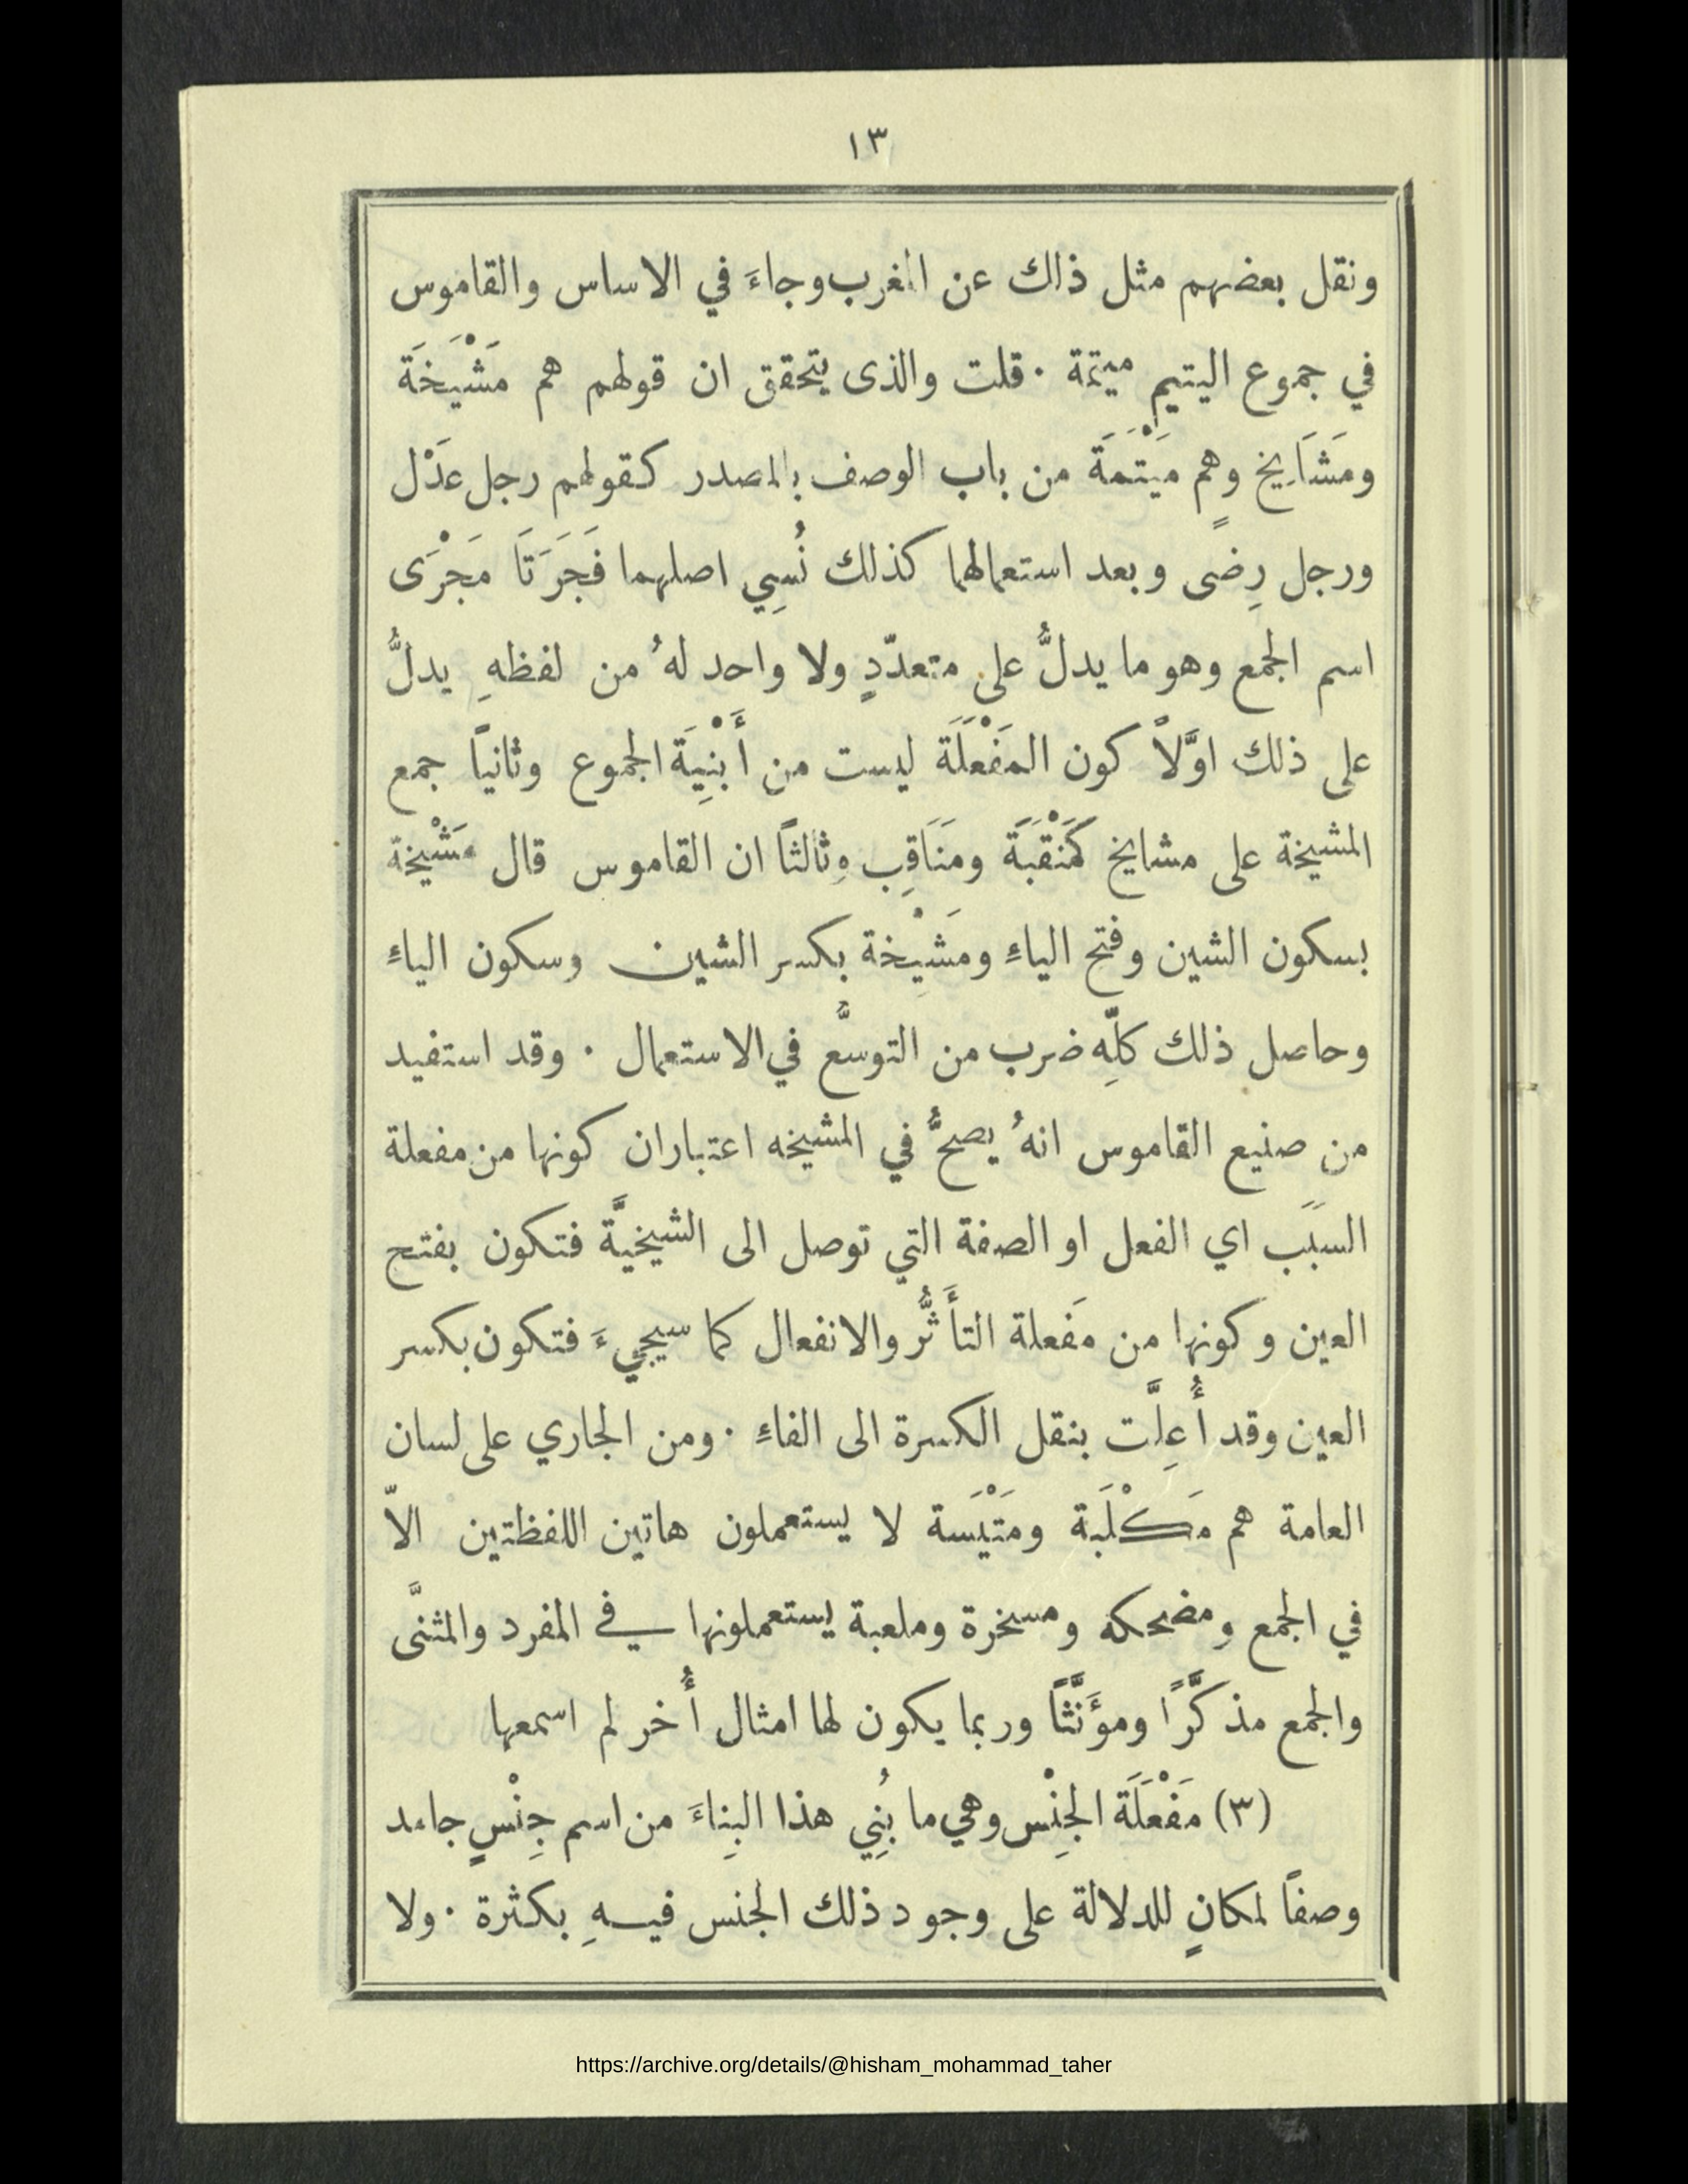 ١٣
ونقل بعضهم مثل ذلك عن المغرب وجاءَ في الاساس والقاموس
في جموع اليتيم ميتمة ٠ قلت والذى يتحقق ان قولهم هم مَشْيَخَة
ومَشَايِخ وهم مَيْتَمَةَ من باب الوصف بالمصدر كقولهم رجل عَدْل
ورجل رِضىً وبعد استعمالهما كذلك نُسِي اصلهما فَجَرَتَا مَجْرَى
اسم الجمع وهو ما يدلُّ على متعدّدٍ ولا واحد لهُ من لفظهِ يدلُّ
على ذلك اوَّلاً كون المَفْعَلَة ليست من أَبْنِيَة الجموع وثانيًا جمع
المشيخة على مشايخ كَمَنْقَبَة ومَنَاقِب وثالثاً ان القاموس قال مَشْيخة
بسكون الشين وفتح الياءِ ومَشِيْخة بكسر الشين وسكون الياءِ
وحاصل ذلك كلِّه ضرب من التوسُّع في الاستعمال ٠ وقد استفيد
من صنيع القاموس انهُ يصحُّ في المشيخه اعتباران كونها من مفعلة
السبَب اي الفعل او الصفة التي توصل الى الشيخيَّة فتكون بفتح
العين وكونها من مَفعلة التأَثُّر والانفعال كما سيجيءَ فتكون بكسر
العين وقد أُعِلَّت بنقل الكسرة الى الفاءِ ٠ ومن الجاري على لسان
العامة هم مَكْلَبة ومَتْيَسة لا يستعملون هاتين اللفظتين الاّ
في الجمع ومضحكه ومسخرة وملعبة يستعملونها في المفرد والمثنَّى
والجمع مذكَّرًا ومؤَنَّثاً وربما يكون لها امثال أُخر لم اسمعها
(٣) مَفْعَلَة الجِنْس وهي ما بُنِي هذا البِناءَ من اسم جِنْسٍ جامد
وصفاً لمكانٍ للدلالة على وجود ذلك الجنس فيهِ بكثرة ٠ ولا
https://archive.org/details/@hisham_mohammad_taher